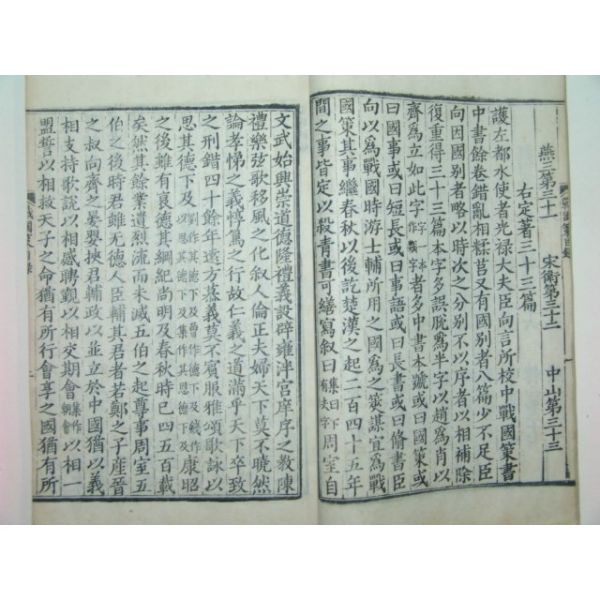 燕三第三十一 宋衛第三十二 中山第三十三
右定著三十三篇
護左都水使者光祿大夫臣向言所校中戰國策書
中書餘卷錯亂相糅莒又有國別者八篇少不足臣
向因國別者略以時次之分別不以序者以相補除
復重得三十三篇本字多誤脫爲半字以趙爲肖以
齊爲立如此字一本作類字者多中書本號或曰國策或
曰國事或曰短長或曰事語或曰長書或曰脩書臣
向以爲戰國時游士輔所用之國爲之筴謀宜爲戰
國策其事繼春秋以後訖楚漢之起二百四十五年
間之事皆定以殺青書可繕寫叙曰集曰一本有夫字周室自
文武始興崇道德隆禮義設辟雍泮宮庠序之教陳
禮樂弦歌移風之化叙人倫正夫婦天下莫不曉然
論孝悌之義惇篤之行故仁義之道滿乎天下卒致
之刑錯四十餘年遠方慕義莫不賓服雅頌歌詠以
思其德下及劉作其德下及曾作德下及錢作以思其德下及集作其恩德下及康昭
之後雖有衰德其綱紀尚明及春秋時已四五百載
矣然其餘業遺烈流而未滅五伯之起尊事周室五
伯之後時君雖無德人臣輔其君者若鄭之子產晉
之叔向齊之晏嬰挾君輔政以並立於中國猶以義
相支持歌說以相感聘覲以相交期會集作朝會以相一
盟誓以相救天子之命猶有所行會享之國猶有所